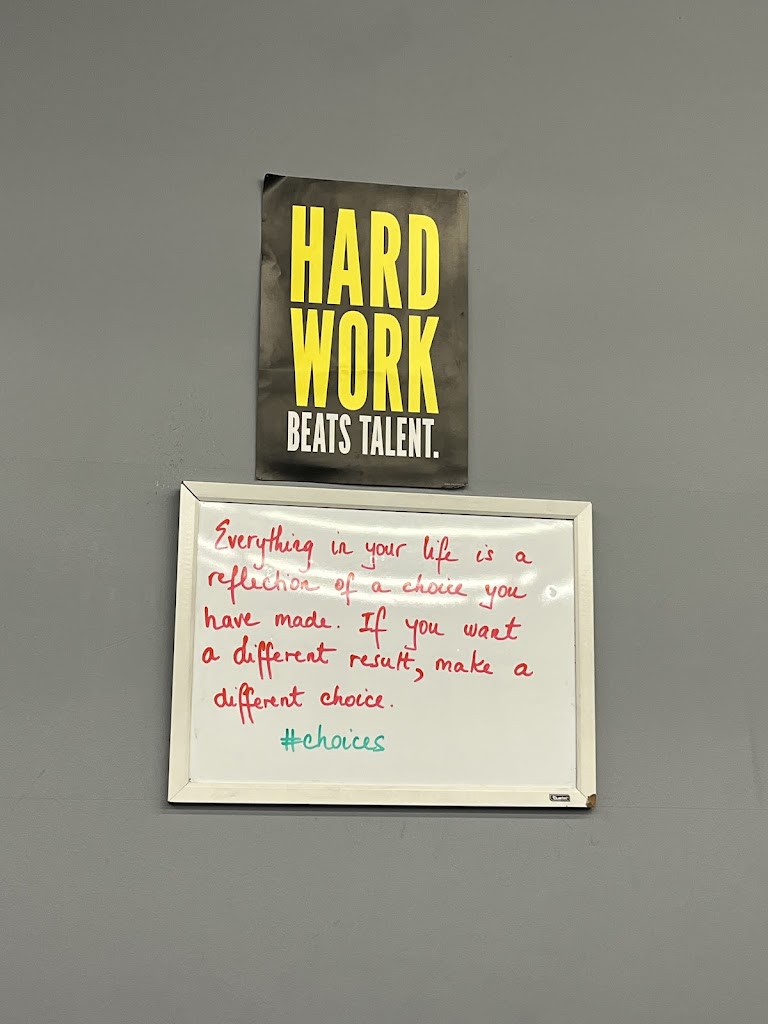 HARD
WORK
BEATS TALENT.
Everything in your life is a
reflection of a choice you
have made. If you want
a different result, make a
different choice.
#choices